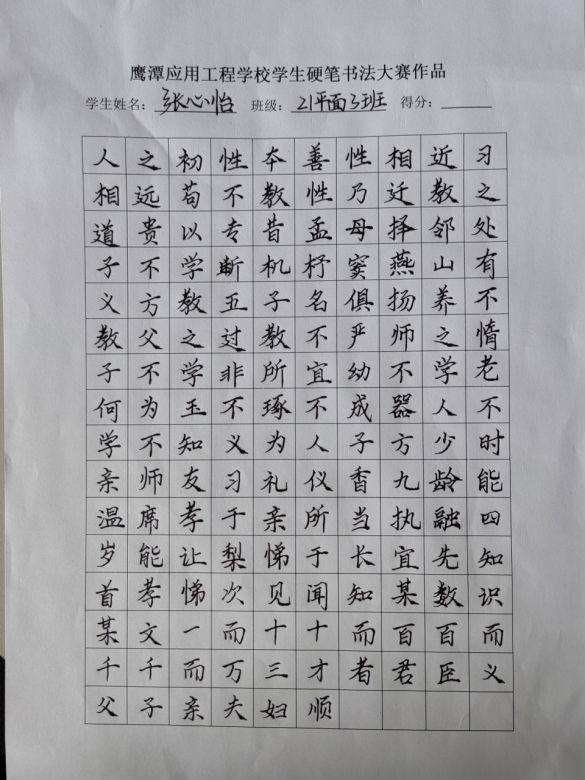 鹰潭应用工程学校学生硬笔书法大赛作品
学生姓名：张心怡 班级：21平面3班 得分：
人之初性本善性相近习
相远苟不教性乃迁教之
道贵以专昔孟母择邻处
子不学断机杼窦燕山有
义方教五子名俱扬养不
教父之过教不严师之惰
子不学非所宜幼不学老
何为玉不琢不成器人不
学不知义为人子方少时
亲师友习礼仪香九龄能
温席孝于亲所当执融四
岁能让梨悌于长宜先知
首孝悌次见闻知某数识
某文一而十十而百百而
千千而万三才者君臣义
父子亲夫妇顺